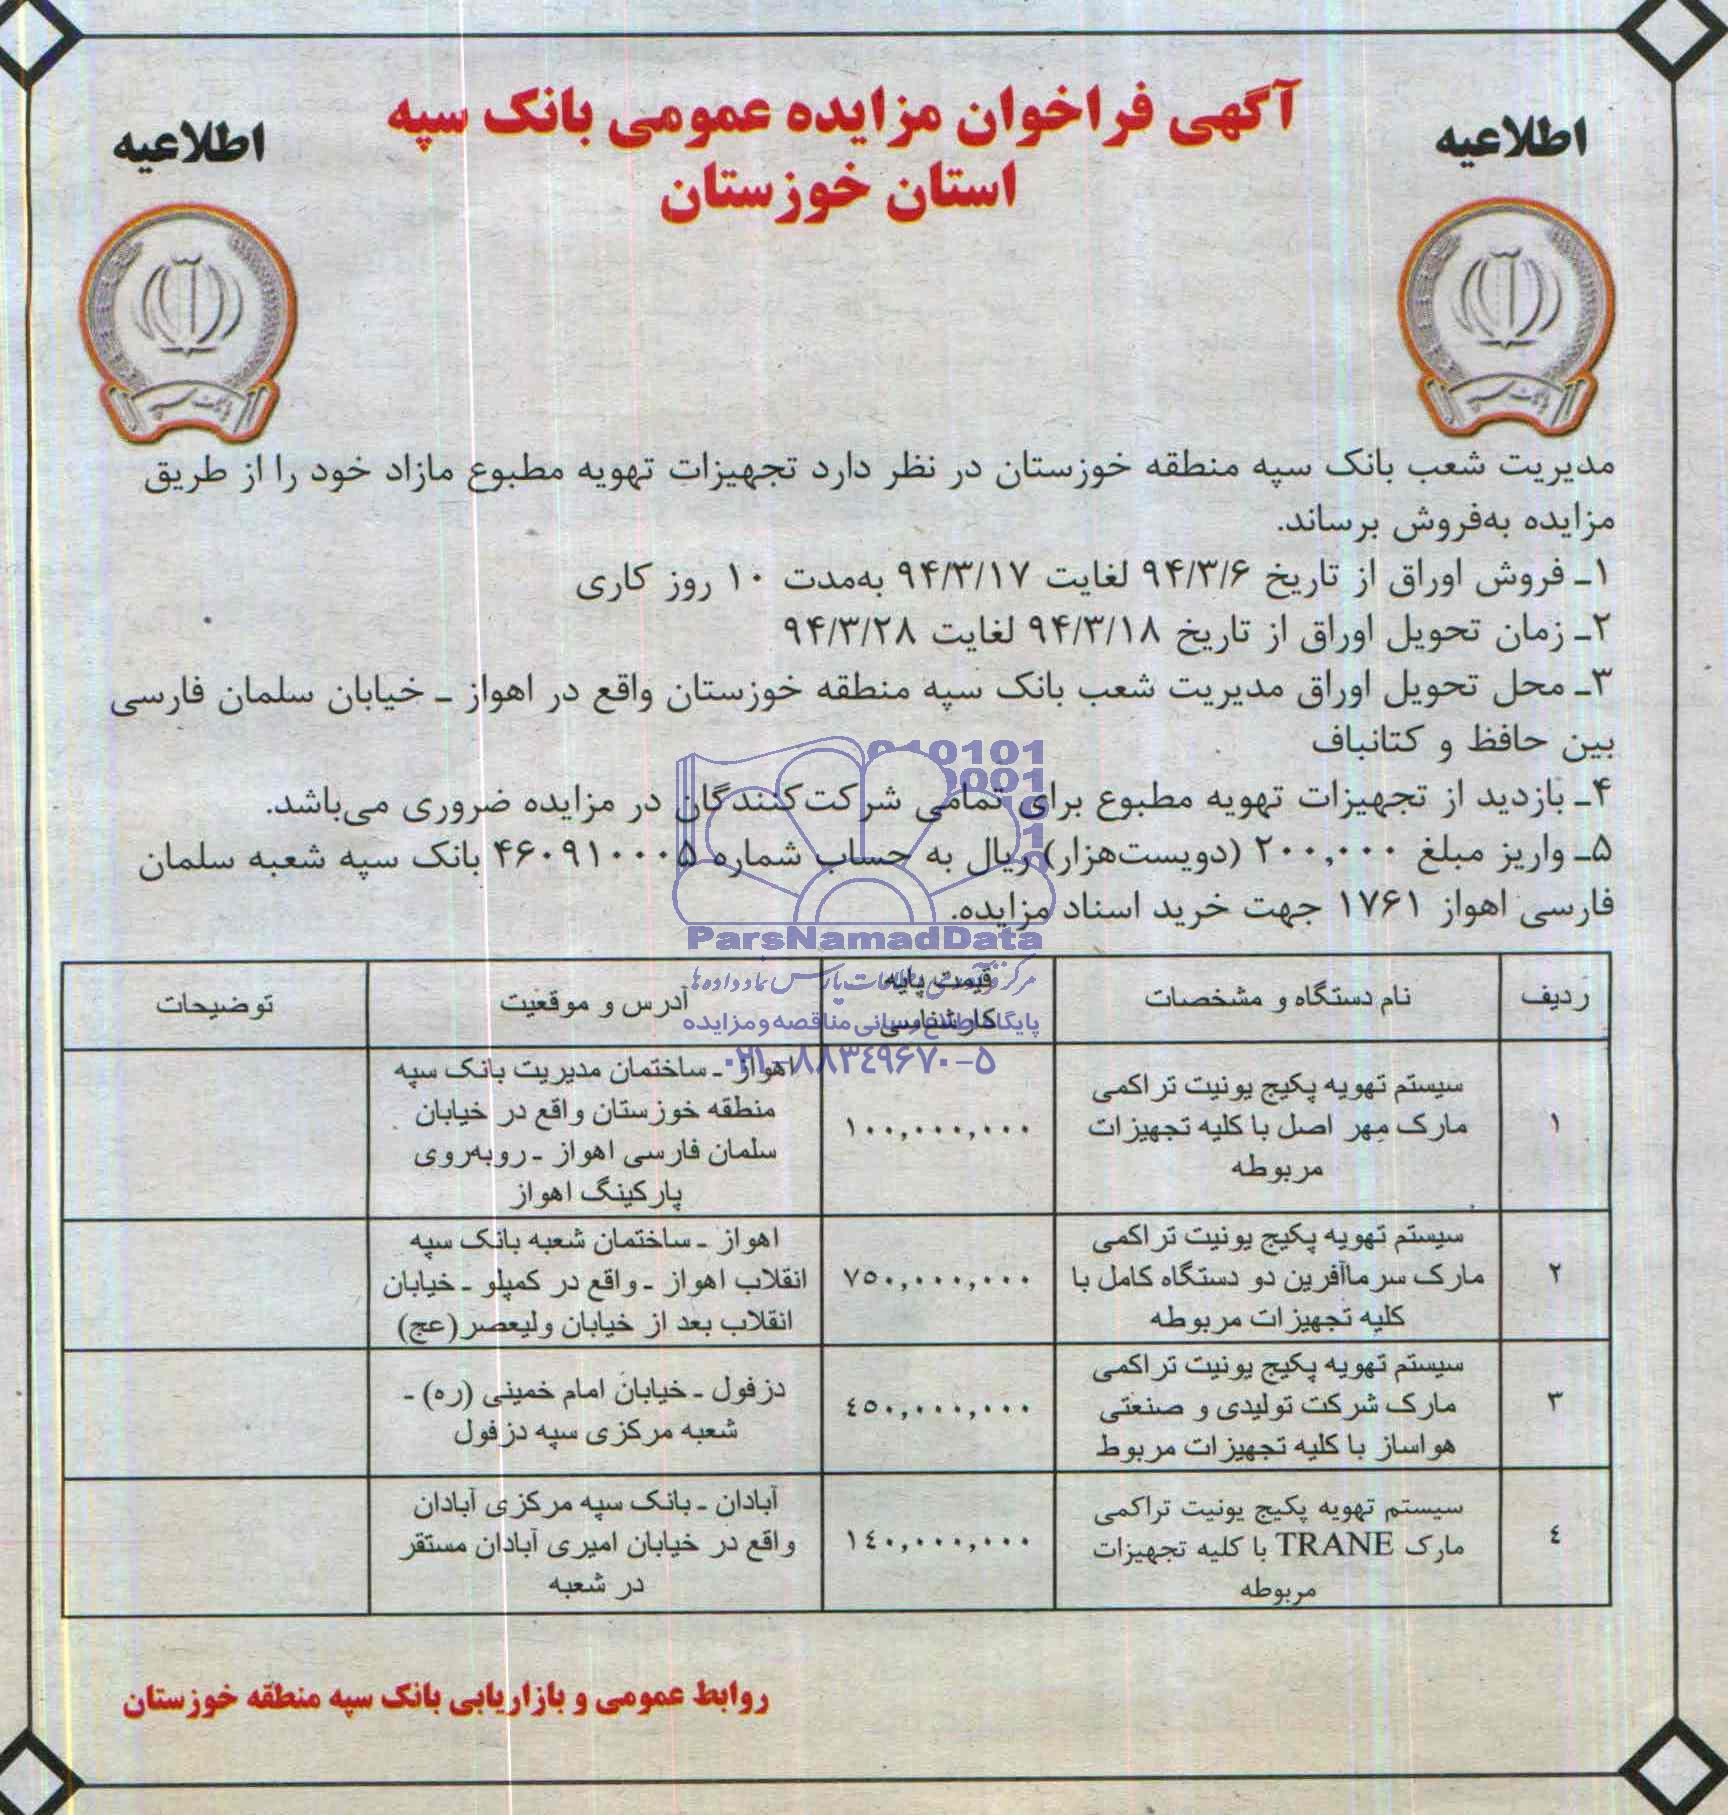 آگهی فراخوان مزایده عمومی بانک سپه
استان خوزستان
اطلاعیه
اطلاعیه
بانک سپه
بانک سپه
مدیریت شعب بانک سپه منطقه خوزستان در نظر دارد تجهیزات تهویه مطبوع مازاد خود را از طریق
مزایده به‌فروش برساند.
۱ـ فروش اوراق از تاریخ ۹۴/۳/۶ لغایت ۹۴/۳/۱۷ به‌مدت ۱۰ روز کاری
۲ـ زمان تحویل اوراق از تاریخ ۹۴/۳/۱۸ لغایت ۹۴/۳/۲۸
۳ـ محل تحویل اوراق مدیریت شعب بانک سپه منطقه خوزستان واقع در اهواز ـ خیابان سلمان فارسی
بین حافظ و کتانباف
۴ـ بازدید از تجهیزات تهویه مطبوع برای تمامی شرکت‌کنندگان در مزایده ضروری می‌باشد.
۵ـ واریز مبلغ ۲۰۰,۰۰۰ (دویست‌هزار) ریال به حساب شماره ۴۶۰۹۱۰۰۰۵ بانک سپه شعبه سلمان
فارسی اهواز ۱۷۶۱ جهت خرید اسناد مزایده.
ParsNamadData
پایگاه اطلاع رسانی مناقصه و مزایده
۰۲۱-۸۸۳۴۹۶۷۰-۵
ردیف
نام دستگاه و مشخصات
قیمت پایه
کارشناسی
آدرس و موقعیت
توضیحات
۱
سیستم تهویه پکیج یونیت تراکمی
مارک مهر اصل با کلیه تجهیزات
مربوطه
۱۰۰,۰۰۰,۰۰۰
اهواز ـ ساختمان مدیریت بانک سپه
منطقه خوزستان واقع در خیابان
سلمان فارسی اهواز ـ روبه‌روی
پارکینگ اهواز
۲
سیستم تهویه پکیج یونیت تراکمی
مارک سرماآفرین دو دستگاه کامل با
کلیه تجهیزات مربوطه
۷۵۰,۰۰۰,۰۰۰
اهواز ـ ساختمان شعبه بانک سپه
انقلاب اهواز ـ واقع در کمپلو ـ خیابان
انقلاب بعد از خیابان ولیعصر(عج)
۳
سیستم تهویه پکیج یونیت تراکمی
مارک شرکت تولیدی و صنعتی
هواساز با کلیه تجهیزات مربوط
۴۵۰,۰۰۰,۰۰۰
دزفول ـ خیابان امام خمینی (ره) ـ
شعبه مرکزی سپه دزفول
۴
سیستم تهویه پکیج یونیت تراکمی
مارک TRANE با کلیه تجهیزات
مربوطه
۱۴۰,۰۰۰,۰۰۰
آبادان ـ بانک سپه مرکزی آبادان
واقع در خیابان امیری آبادان مستقر
در شعبه
روابط عمومی و بازاریابی بانک سپه منطقه خوزستان